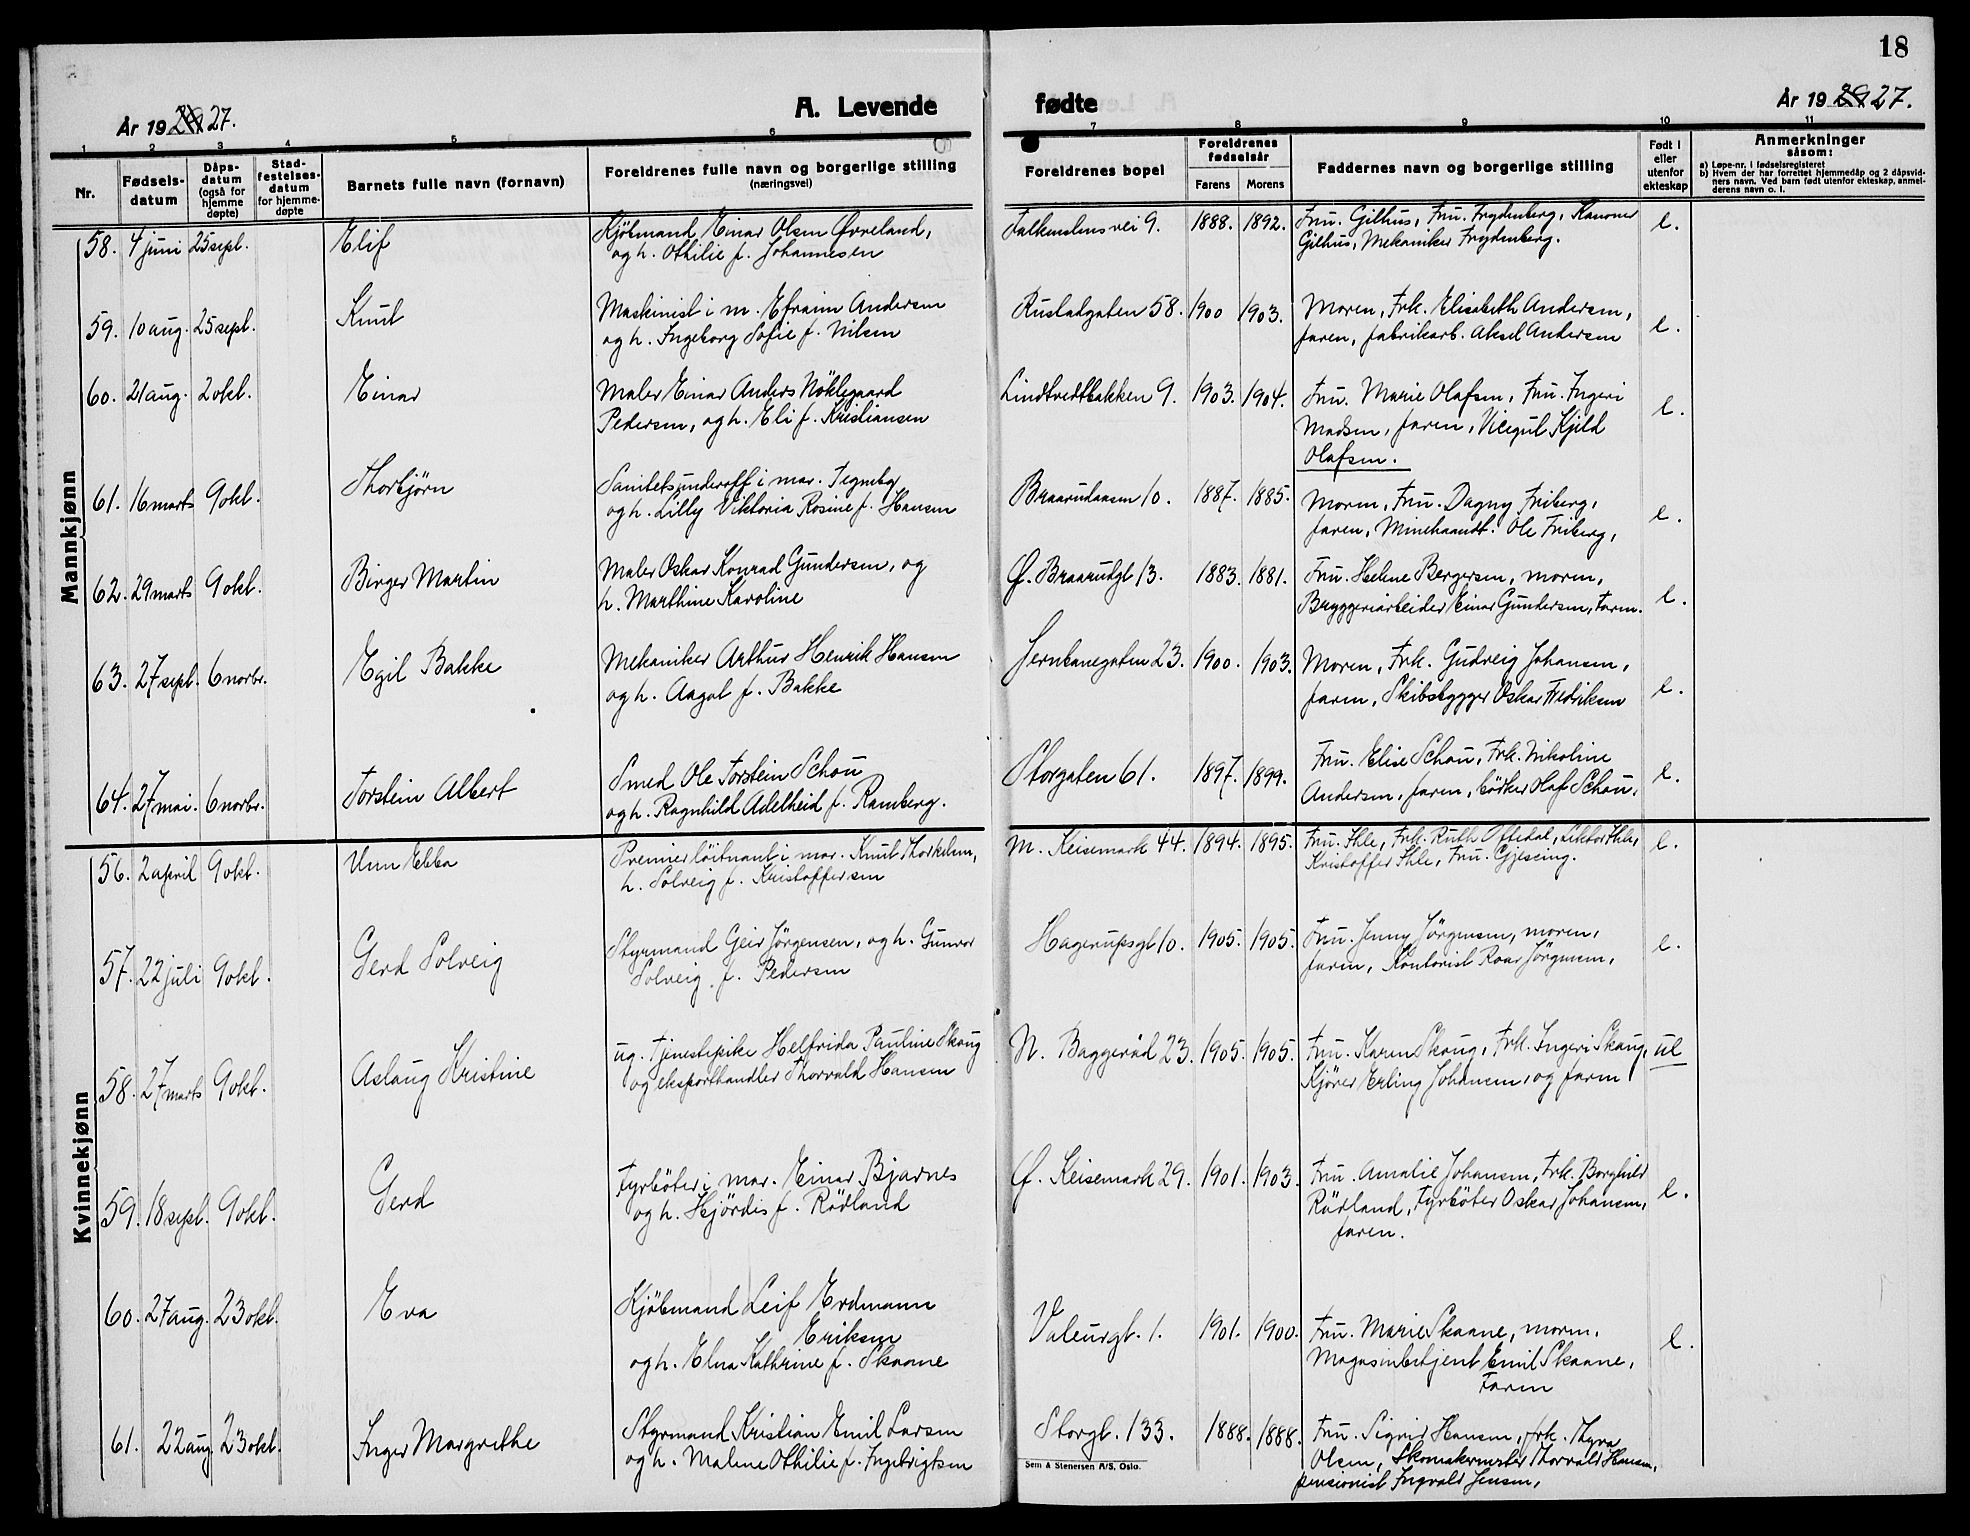 18
År 1927.
A. Levende
fødte
År 1927.
1 2 3 4 5 6 7 8 9 10 11
Nr.
Fødsels-
datum
Dåps-
datum
(også for
hjemme
døpte)
Stad-
festelses-
datum
for hjemme-
døpte
Barnets fulle navn (fornavn)
Foreldrenes fulle navn og borgerlige stilling
(næringsvei)
Foreldrenes bopel
Foreldrenes
fødselsår
Farens Morens
Faddernes navn og borgerlige stilling
Født i
eller
utenfor
ekteskap
Anmerkninger
såsom:
a) Løpe-nr. i fødselsregisteret
b) Hvem der har forrettet hjemmedåp og 2 dåpsvid-
ners navn. Ved barn født utenfor ekteskap, anmel-
derens navn o. l.
Mannkjønn
58. 4 juni 25 sept. Elif
Kjøbmand Einar Olsen Øvreland,
og h. Othilie f. Johannesen
Falkenstens vei 9. 1888. 1892.
Fru. Gilhus, Fru. Frydenberg, Kanoner
Gilhus, Mekaniker Frydenberg.
e.
59. 10 aug. 25 sept. Knut
Maskinist i m. Efraim Andersen
og h. Ingeborg Sofie f. Nilsen
Rustadgaten 58. 1900 1903.
Moren, Frk. Elisabeth Andersen,
faren, fabrikarb. Aksel Andersen
e.
60. 21 aug. 2 okt. Einar
Maler Einar Anders Nöklegaard
Pedersen, og h. Eli f. Kristiansen
Lindtvedtbakken 9. 1903. 1904.
Fru. Marie Olafsen, Fru. Ingeri
Madsen, faren, Kjeld
Olafsen.
e.
61. 16 marts 9 okt. Thorbjørn
Sanitetsunderoff i mar. Tegneby
og h. Lilly Viktoria Rosine f. Hansen
Braarudaasen 10. 1887. 1885.
Moren, Fru. Dagny Friberg,
faren, Minehaandt. Ole Friberg,
e.
62. 29 marts 9 okt. Birger Martin
Maler Oskar Konrad Gundersen, og
h. Marthine Karoline
Ø. Braarudgt 13. 1883. 1881.
Fru. Helene Bergersen, moren,
Bryggeriarbeider Einar Gundersen, Faren.
e.
63. 27 sept. 6 novbr. Egil Bakke
Mekaniker Arthur Henrik Hansen
og h. Aagot f. Bakke
Jernbanegaten 23. 1900. 1903.
Moren, Frk. Gudveig Johansen,
faren, Skibsbygger Oskar Fredriksen
e.
64. 27 mai. 6 novbr. Torstein Albert
Smed Ole Torstein Schou
og h. Ragnhild Adelheid f. Ramberg.
Storgaten 61. 1897. 1899.
Fru. Elise Schou, Frk. Nikoline
Andersen, faren, bödker Olaf Schou,
e.
Kvinnekjønn
56. 2 april 9 okt. Unn Ebba
Premierløitnant i mar. Knut Thorkelsen,
h. Solveig f. Kristoffersen
M. Keisemark 44. 1894. 1895.
Fru. Ihle, Frk. Ruth Oftedal, Lektor Ihle,
Kristoffer Ihle, Fru. Gjeseing.
e.
57. 22 juli 9 okt. Gerd Solveig
Styrmand Geir Jørgensen, og h. Gunvor
Solveig, f. Pedersen
Hagerupsgt 10. 1905. 1905.
Fru. Jenny Jørgensen, moren,
faren, Kontorist Roar Jørgensen,
e.
58. 27 marts 9 okt. Aslaug Kristine
ug. Tjenestepike Helfrida Pauline Skaug
og eksporthandler Thorvald Hansen
N. Baggerød 23. 1905. 1905.
Fru. Karen Skaug, Frk. Ingeri Skaug,
Kjører Erling Johansen, og faren
ul
59. 18 sept. 9 okt. Gerd
Fyrböter i mar. Einar Bjarnes
og h. Hjördis f. Rödland
Ø. Keisemark 29. 1901. 1903.
Fru. Amalie Johansen, Frk. Borghild
Rödland, Fyrböter Oskar Johansen,
faren.
e.
60. 27 aug. 23 okt. Eva
Kjöbmand Leif Erdmann
Eriksen
og h. Elna Kathrine f. Skaane
Valeurgt. 1. 1901. 1900.
Fru. Marie Skaane, moren,
Magasinbetjent Emil Skaane,
Faren
e.
61. 22 aug. 23 okt. Inger Margrethe
Styrmand Kristian Emil Larsen
og h. Malene Othilie f. Ingebrigtsen
Storgt. 133. 1888. 1888.
Fru. Sigrid Hansen, frk. Thyra
Olsen, Skomakermester Thorvald Hansen,
pensionist Ingvald Jensen,
Sem & Stenersen A/S, Oslo.